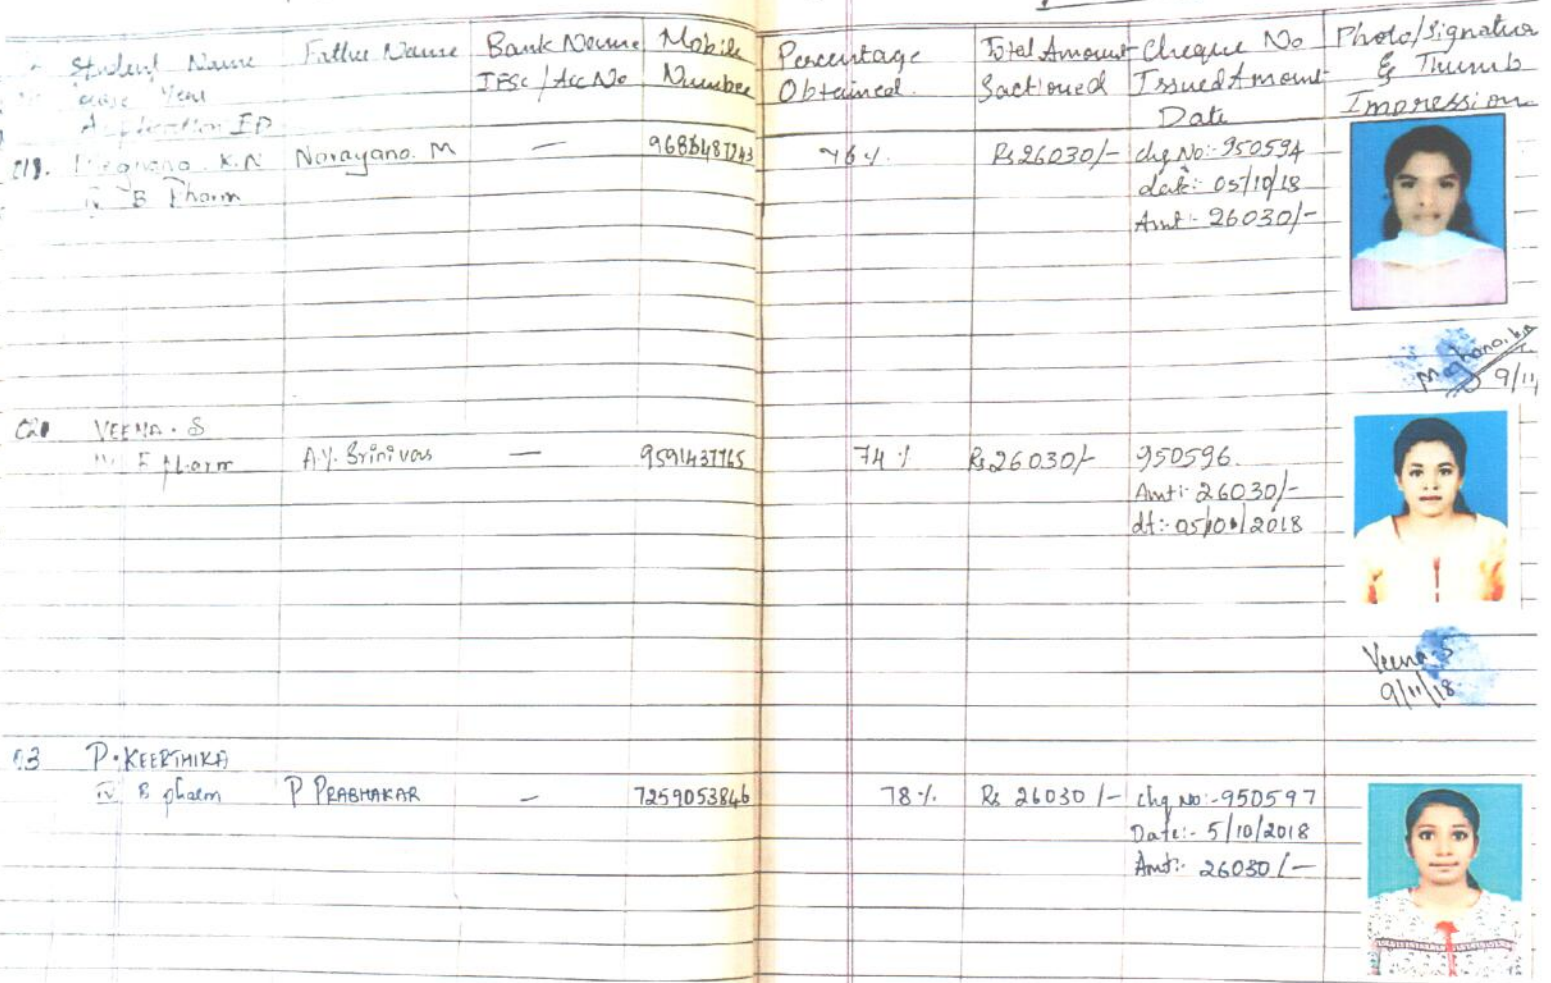 Student Name
Father Name
Bank Name
IFSC / Acc No
Mobile
Number
Percentage
Obtained.
Total Amount
Sactioned
Cheque No
Issued Amount
Date
Photo/Signature
& Thumb
Impression
Year
Application ID
Meghana. K.N
IV B Pharm
Narayana. M
—
76%.
Rs 26030/-
chq No:- 950594
date:- 05/10/18
Amt:- 26030/-
Meghana. K.N
9/11/
VEENA. S
B pharm
A.Y. Srinivas
—
9591437765
74 %
Rs 26030/-
950596.
Amt:- 26030/-
dt:- 05/10/2018
Veena. S
9/11/18
P. KEERTHIKA
IV B pharm
P PRABHAKAR
—
7259053846
78 %.
Rs 26030 /-
chq no:- 950597
Date:- 5/10/2018
Amt:- 26030 /-